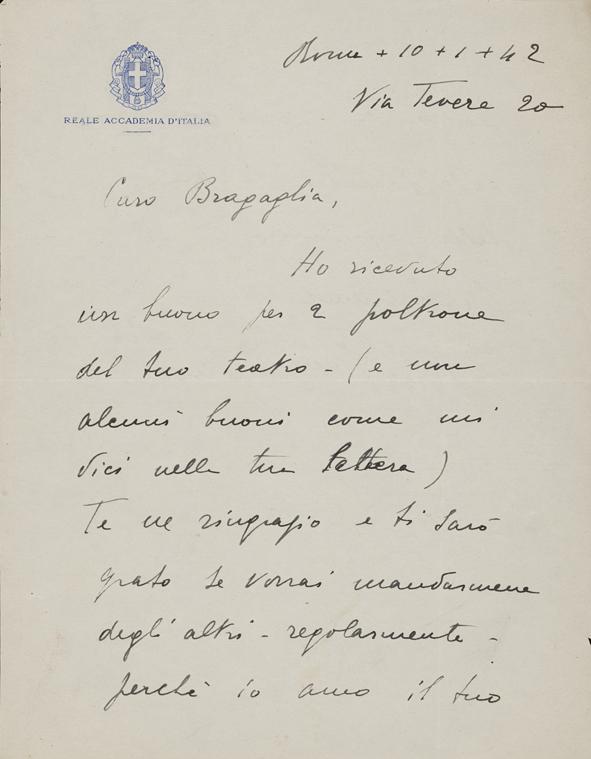 Roma + 10 + 1 + 42
Via Tevere 20
REALE ACCADEMIA D'ITALIA
Caro Bragaglia,
Ho ricevuto
un buono per 2 poltrone
del tuo teatro - (e non
alcuni buoni come mi
dici nella tua lettera)
Te ne ringrazio e ti sarò
grato se vorrai mandarmene
degli altri - regolarmente -
perchè io amo il tuo